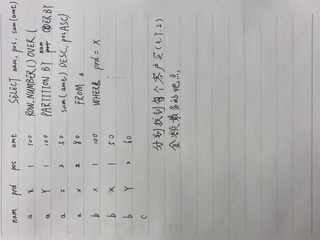 nam prd pos amt
a X 1 100
a Y 1 100
a Z 2 50
a X 2 80
b X 1 100
b X 1 50
b Y 2 60
c
SELECT nam, pos, sum(amt)
ROW_NUMBER() OVER (
PARTITION BY nam ORDER BY
sum(amt) DESC, pos ASC)
FROM a
WHERE prd = X
分别找到每个客户买(X,Y,Z)
金额最多的地点。